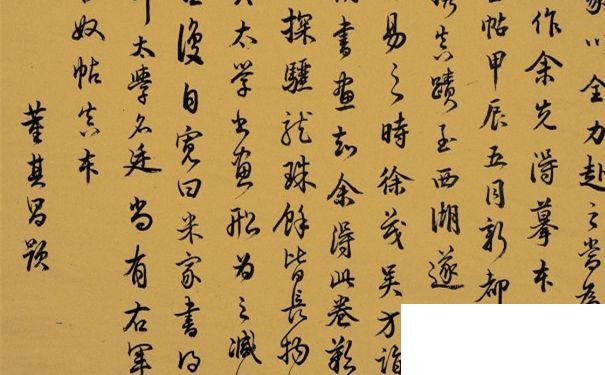 以全力赴之當為
作余先得摹本
帖甲辰五月新都
携真蹟至西湖遂
易之時徐茂吳方詣
書畫知余得此卷歎
探驪龍珠餘皆長物
太學書畫船為之減
復自寬曰米家書得
太學名廷尚有右軍
奴帖真本
董其昌題